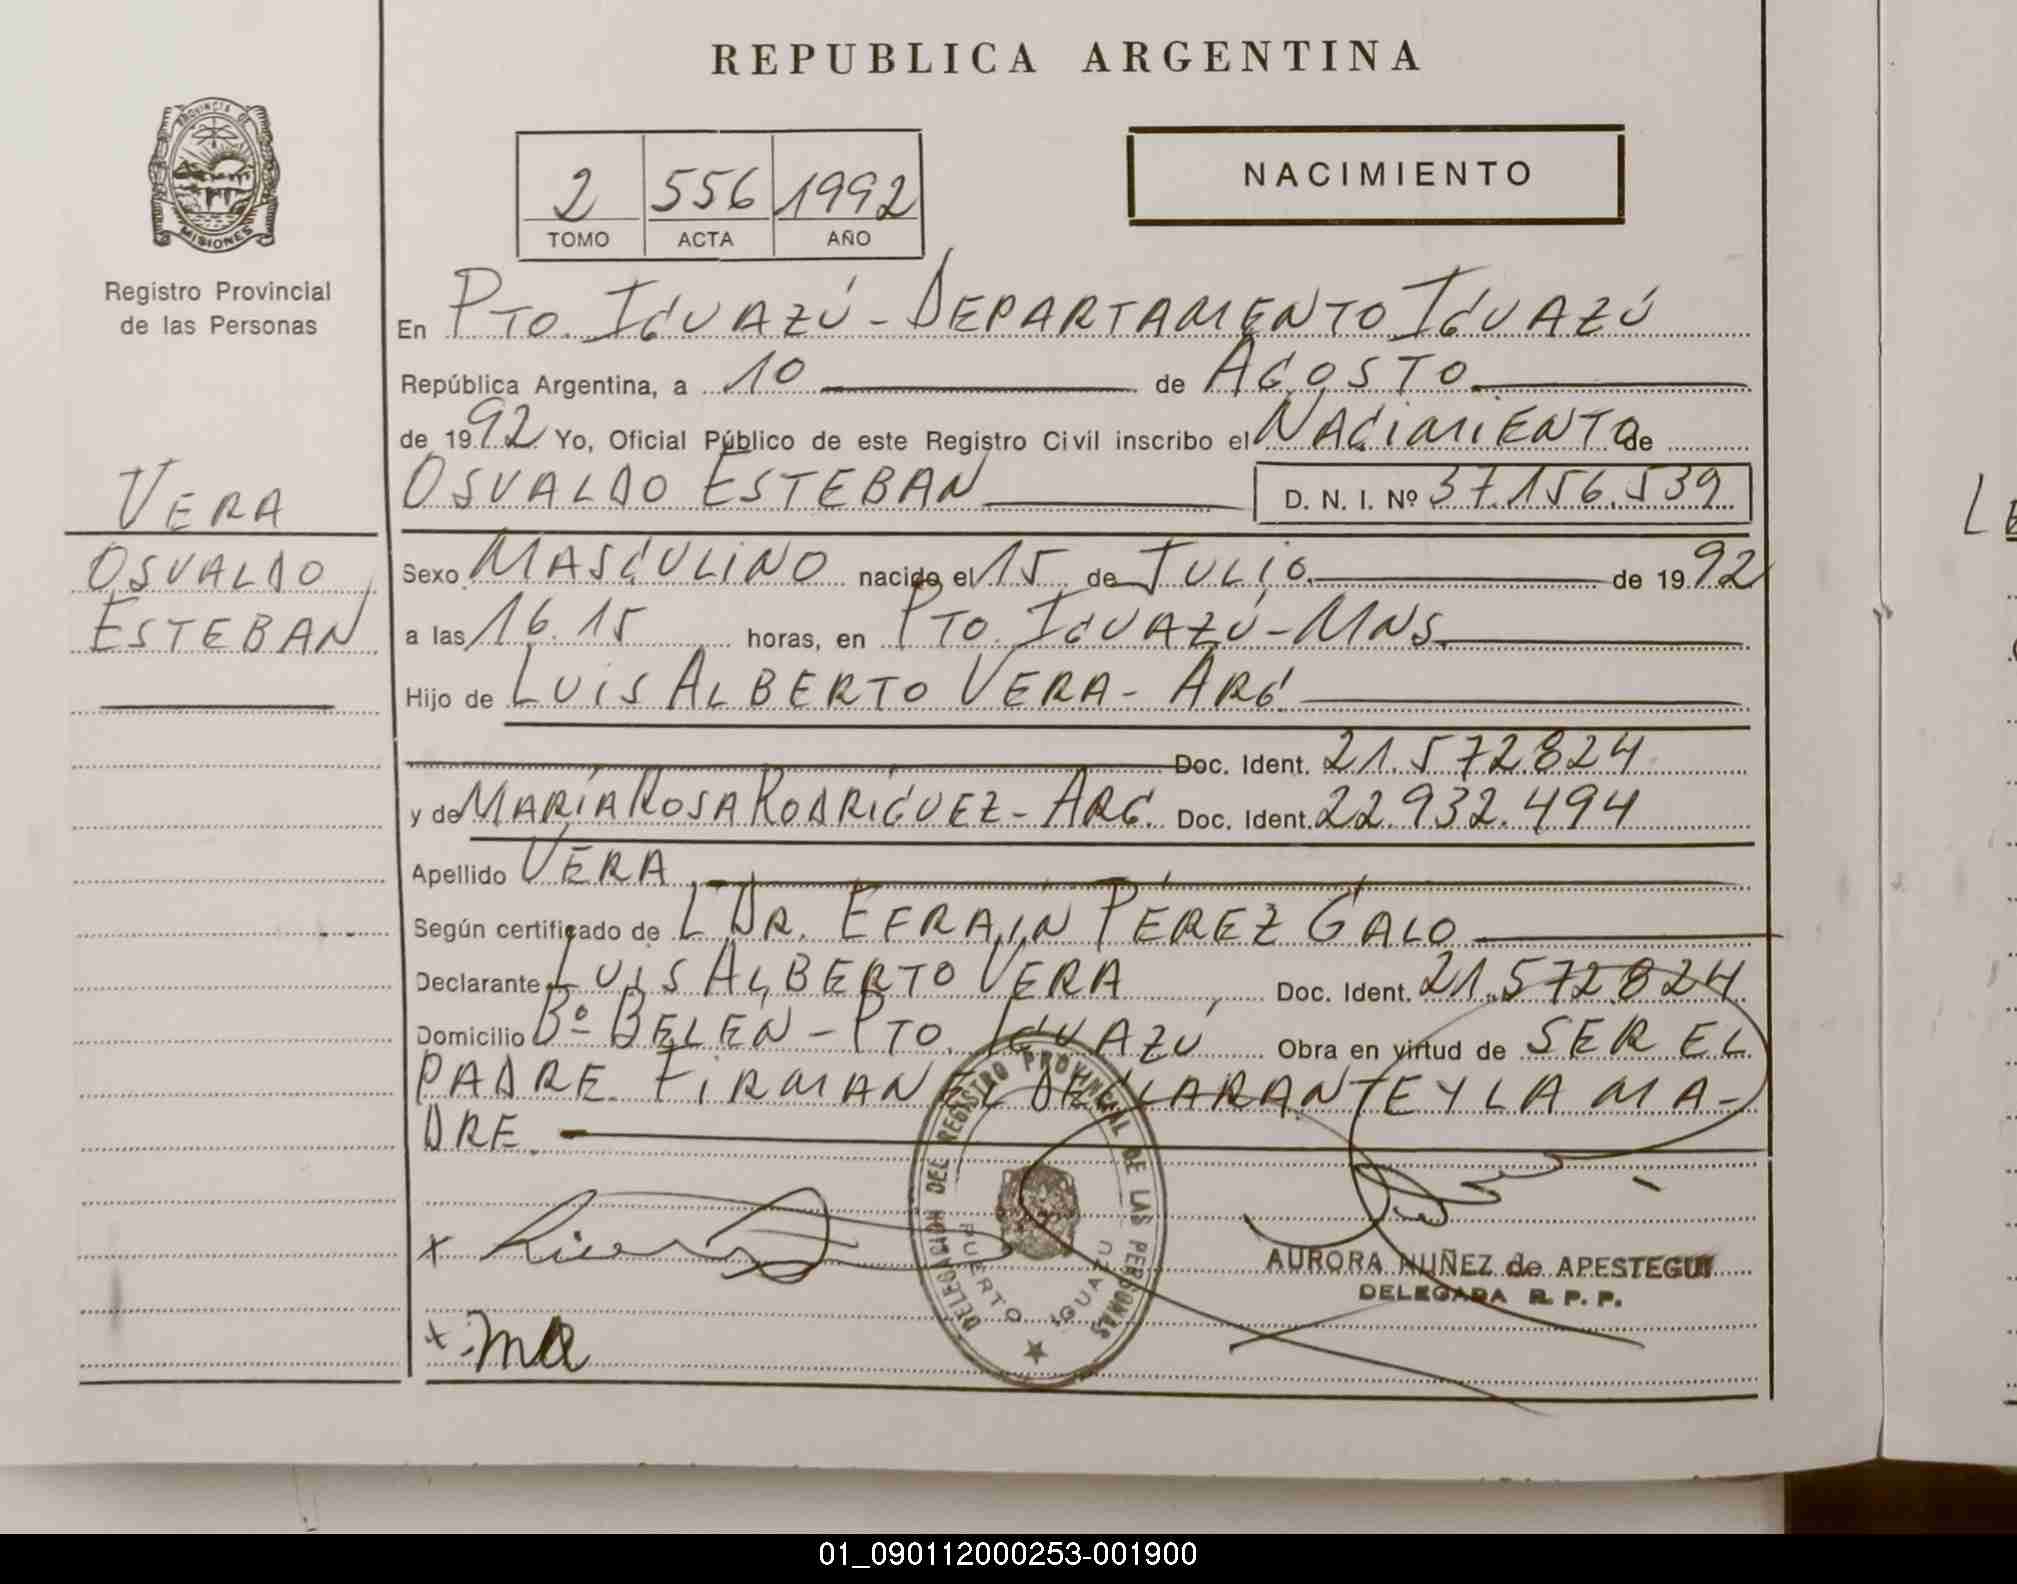 REPUBLICA ARGENTINA
PROVINCIA DE
MISIONES
Registro Provincial
de las Personas
VERA
OSVALDO
ESTEBAN
2 556 1992
TOMO ACTA AÑO
NACIMIENTO
En PTO. IGUAZÚ - DEPARTAMENTO IGUAZÚ
República Argentina, a 10 de AGOSTO
de 1992 Yo, Oficial Público de este Registro Civil inscribo el NACIMIENTO de
OSVALDO ESTEBAN D. N. I. Nº 37.156.539
Sexo MASCULINO nacido el 15 de JULIO de 1992
a las 16.15 horas, en PTO. IGUAZÚ - MNS.
Hijo de LUIS ALBERTO VERA - ARG.
Doc. Ident. 21.572.824
y de MARÍA ROSA RODRÍGUEZ - ARG. Doc. Ident. 22.932.494
Apellido VERA
Según certificado de L DR. EFRAÍN PÉREZ GALO
Declarante LUIS ALBERTO VERA Doc. Ident. 21.572.824
Domicilio Bº BELÉN - PTO. IGUAZÚ Obra en virtud de SER EL
PADRE. FIRMAN EL DECLARANTE Y LA MA-
DRE.
DELEGACION DEL REGISTRO PROVINCIAL DE LAS PERSONAS
PUERTO IGUAZU
AURORA NUÑEZ de APESTEGUI
DELEGADA R. P. P.
LE
01_090112000253-001900